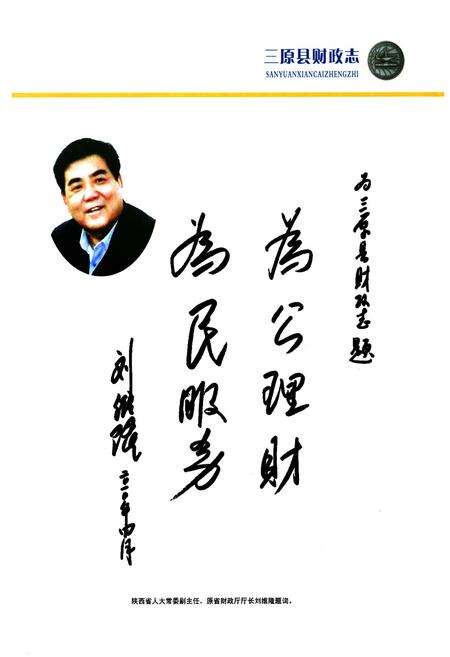 三原县财政志
SANYUANXIANCAIZHENGZHI
为三原县财政志题
為公理财
為民服务
刘维隆
二〇一〇年四月
陕西省人大常委副主任、原省财政厅厅长刘维隆题词。